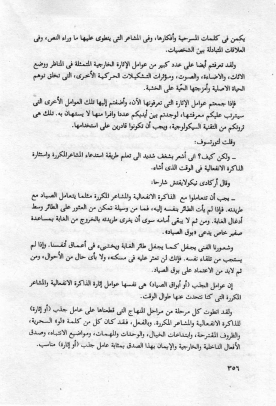 يكمن فى كلمات المسرحية وأفكارها، وفى المشاعر التى ينطوى عليها ما وراء النص، وفى
العلاقات المتبادلة بين الشخصيات.
ولقد تعرفتم أيضا على عدد كبير من عوامل الإثارة الخارجية المتمثلة فى المناظر ووضع
الاثاث، والاضاءة، والصوت، ومؤثرات التشكيلات الحركية الأخرى، التى تخلق توهم
الحياة الأصلية وأمزجتها الحية على الخشبة.
فإذا جمعتم عوامل الإثارة التى تعرفونها الآن، وأضفتم إليها تلك العوامل الأخرى التى
سيترتب عليكم معرفتها، لوجدتم بين أيديكم عددا وافرا منها لا يستهان به. تلك هى
ثروتكم من التقنية السيكولوجية، ويجب أن تكونوا قادرين على استخدامها.
وقلت لتورتسوف:
ـ ولكن كيف؟ انى أشعر بشغف شديد الى تعلم طريقة استدعاء المشاعر المكررة واستثارة
الذاكرة الانفعالية فى الوقت الذى أشاء.
وقال أركادى نيكولايفتش شارحا:
ـ يجب أن تتعاملوا مع الذاكرة الانفعالية والمشاعر المكررة مثلما يتعامل الصياد مع
طريدته. فإذا لم يأت الطائر بنفسه إليه، فما من وسيلة تمكن من العثور على الطائر وسط
أدغال الغابة. ومن ثم لا يبقى أمامه سوى أن يغرى طريدته بالخروج من الغابة بمساعدة
صفير خاص يدعى «بوق الصياد».
وشعورنا الفنى يجفل كما يجفل طائر الغابة ويختبىء فى أعماق أنفسنا. وإذا لم
يستجب من تلقاء نفسه. فإنك لن تعثر عليه فى مسكنه، ولا بأى حال من الأحوال، ومن
ثم لابد من الاعتماد على بوق الصياد.
إن عوامل الجذب (أو أبواق الصياد) هى نفسها عوامل إثارة الذاكرة الانفعالية والمشاعر
المكررة التى كنا نتحدث عنها طوال الوقت.
ولقد انطوت كل مرحلة من مراحل المنهاج التى قطعناها على عامل جذب (أو إثارة)
للذاكرة الانفعالية والمشاعر المكررة. وبالفعل، فقد كان كل من كلمة «لو» السحرية،
والظروف المقترحة، وابتداعات الخيال، والوحدات والمهمات، ومواضيع الانتباه، وصدق
الأفعال الداخلية والخارجية والإيمان بهذا الصدق بمثابة عامل جذب (أو إثارة) مناسب.
٣٥٦